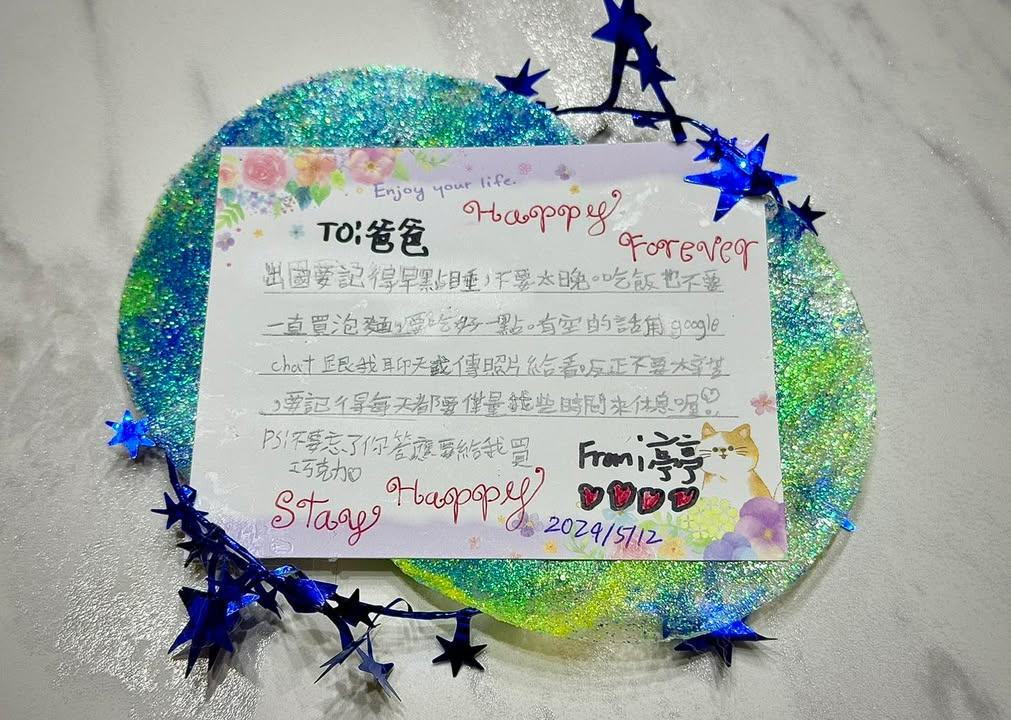 Enjoy your life.
Happy
Forever
TO:爸爸
出國要記得早點睡,不要太晚。吃飯也不要
一直買泡麵,要吃好一點。有空的話用google
chat跟我聊天或傳照片給看。反正不要太辛苦
,要記得每天都要儘量 些時間來休息喔
PS:不要忘了你答應要給我買
巧克力
From:
Stay Happy
2024/5/12